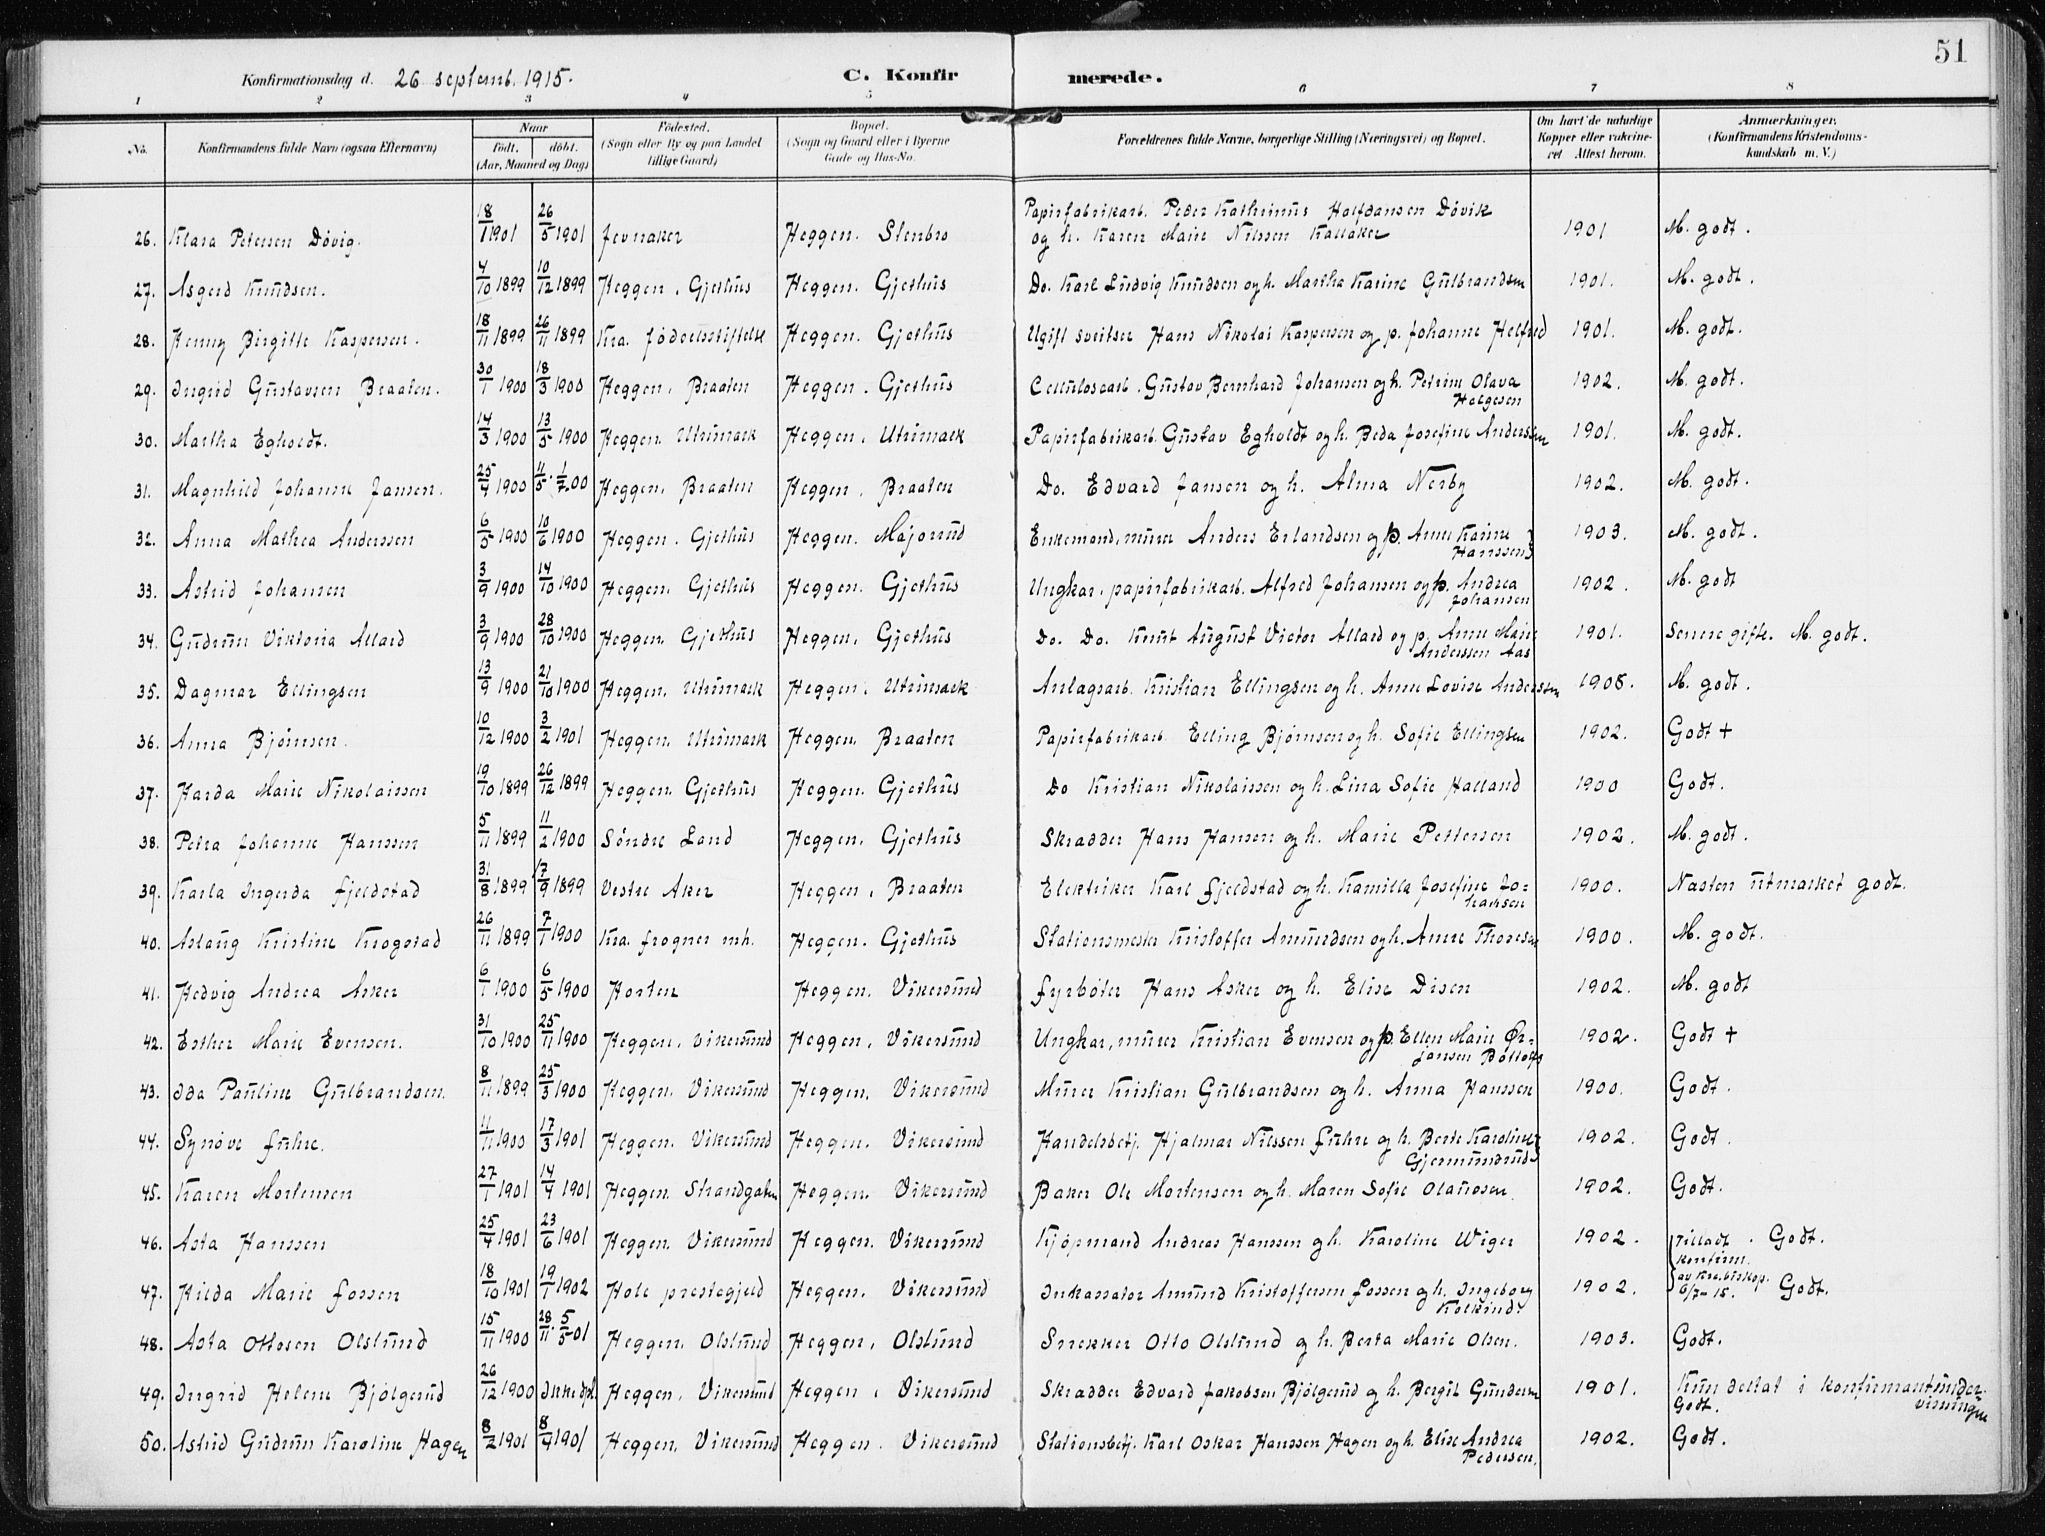 51
Konfirmationsdag d. 26 septemb. 1915.
C. Konfir merede.
1 2 3 4 5 6 7 8
No. Konfirmandens fulde Navn (ogsaa Efternavn) Naar født. døbt. (Aar, Maaned og Dag) Fødested. (Sogn eller By og paa Landet tillige Gaard) Bopæl. (Sogn og Gaard eller i Byerne Gade og Hus-No. Forældrenes fulde Navne, borgerlige Stilling (Næringsvei) og Bopæl. Om havt de naturlige Kopper eller vakcineret. Attest herom. Anmærkninger. (Konfirmandens Kristendomskundskab m. V.)
26. Klara Petersen Dövig. 18/1 1901 26/5 1901 Jevnaker Heggen. Stenbro Papirfabrikarb. Peder Kathrinus Halfdansen Dövik og h. Karen Marie Nilssen Kallaker 1901 M. godt.
27. Asgerd Knudsen. 4/10 1899 10/12 1899 Heggen, Gjethus Heggen. Gjethus Do. Karl Ludvig Knudsen og h. Martha Karine Gulbrandsen 1901. M. godt.
28. Henny Birgitte Kaspersen. 18/11 1899 26/11 1899 Kra. födselsstiftelse Heggen. Gjethus Ugift sveitser Hans Nikolai Kaspersen og p. Johanne Helfred 1901. M. godt.
29. Ingrid Gustavsen Braaten. 30/1 1900 18/3 1900 Heggen, Braaten Heggen. Gjethus Cellulosearb. Gustav Bernhard Johansen og h. Petrine Olava Helgesen 1902. M. godt.
30. Martha Egholdt. 14/3 1900 13/5 1900 Heggen. Utrimark Heggen, Utrimark Papirfabrikarb. Gustav Egholdt og h. Beda Josefine Anderssen 1901. M. godt.
31. Magnhild Johanne Jansen. 25/4 1900 4/5. 1/7 00 Heggen, Braaten Heggen, Braaten Do. Edvard Jansen og h. Alma Nerby 1902. M. godt.
32. Anna Mathea Anderssen 6/5 1900 10/6 1900 Heggen. Gjethus Heggen. Majorud Enkemand, murer Anders Erlandsen og p. Anne Karine Hanssen 1903. M. godt.
33. Astrid Johansen 3/9 1900 14/10 1900 Heggen. Gjethus Heggen. Gjethus Ungkar, papirfabrikarb. Alfred Johansen og p. Andrea Johansen 1902. M. godt
34. Gudrun Viktoria Allard 3/9 1900 28/10 1900 Heggen. Gjethus Heggen, Gjethus Do. Do. Knut August Victor Allard og p. Anne Marie Anderssen Aas 1901. Senere gifte. M. godt.
35. Dagmar Ellingsen 13/9 1900 21/10 1900 Heggen, Utrimark Heggen. Utrimark Anlagsarb. Kristian Ellingsen og h. Anne Lovise Anderssen 1908. M. godt.
36. Anna Björnsen. 10/12 1900 3/2 1901 Heggen. Utrimark Heggen. Braaten Papirfabrikarb. Elling Björnsen og h. Sofie Ellingsen 1902. Godt +
37. Harda Marie Nikolaissen 19/10 1899 26/12 1899 Heggen. Gjethus Heggen. Gjethus Do Kristian Nikolaissen og h. Lina Sofie Halland 1900 Godt.
38. Petra Johanne Hanssen 5/11 1899 11/2 1900 Söndre Land Heggen. Gjethus Skradder Hans Hansen og h. Marie Pettersen 1902. M. godt.
39. Karla Ingerda Fjeldstad 31/8 1899 17/9 1899 Vestre Aker Heggen, Braaten Elektriker Karl Fjeldstad og h. Kamilla Josefine Johansen 1900. Nasten utmarket godt.
40. Aslaug Kristine Krogstad 26/11 1899 7/1 1900 Kra. Frogner mh. Heggen. Gjethus Stationsmester Kristoffer Amundsen og h. Anne Thoresen 1900. M. godt.
41. Hedvig Andrea Asker 6/1 1900 6/5 1900 Horten Heggen. Vikersund Fyrböter Hans Asker og h. Elise Disen 1902. M. godt
42. Esther Marie Evensen. 31/10 1900 25/11 1900 Heggen, Vikersund Heggen, Vikersund Ungkar, murer Kristian Evensen og p. Ellen Marie Ørjansen Böttolfs 1902. Godt +
43. Ida Pauline Gulbrandsen. 8/11 1899 25/3 1900 Heggen. Vikersund Heggen, Vikersund Murer Kristian Gulbrandsen og h. Anna Hanssen 1900. Godt.
44. Synöve Fuhre. 11/11 1900 17/3 1901 Heggen. Vikersund Heggen. Vikersund Handelsbetj. Hjalmar Nilssen Fuhre og h. Berte Karoline Gjermundrud 1902. Godt.
45. Karen Mortensen 27/1 1901 14/4 1901 Heggen. Strandgaten Heggen. Vikersund Baker Ole Mortensen og h. Maren Sofie Olaussen. 1902. Godt.
46. Asta Hanssen 25/4 1901 23/6 1901 Heggen. Vikersund Heggen. Vikersund Kjöpmand Andreas Hanssen og h. Karoline Wiger 1902. Tilladt konfirm. av Kra. biskop. 6/7-15. Godt.
47. Hilda Marie Fossen 18/10 1901 19/1 1902 Hole prestegjeld Heggen. Vikersund Inkassator Amund Kristoffersen Fossen og h. Ingeborg Kolkind. 1902. Godt.
48. Asta Ottosen Olslund 15/11 1900 28/11. 5/5 01 Heggen. Olslund Heggen, Olslund Snekker Otto Olslund og h. Berta Marie Olsen. 1903. Godt.
49. Ingrid Helene Bjölgerud 26/12 1900 Ikke dpt. Heggen, Vikersund Heggen, Vikersund Skradder Edvard Jakobsen Bjölgerud og h. Bergit Gundersen 1901. Kun deltat i konfirmantundervisningen Godt.
50. Astrid Gudrun Karoline Hagen 8/2 1901 8/4 1901 Heggen. Vikersund Heggen. Vikersund Stationsbetj. Karl Oskar Hanssen Hagen og h. Elise Andrea Pedersen. 1902. Godt.